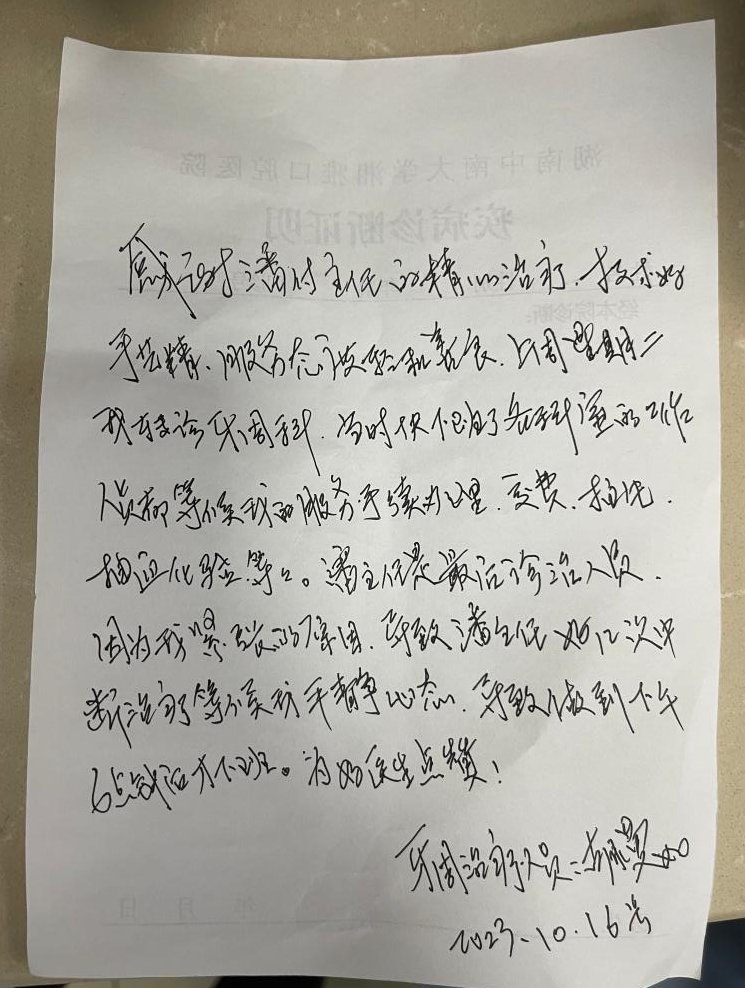 湖南中南大学湘雅口腔医院
疾病诊断证明
经本院诊断:
感谢潘付主任的精心治疗、技术好
手艺精、服务态度轻和亲民、上周星期二
我转诊牙周科、当时快下班了各科室的工作
人员都等候我的服务手续办理、交费、拍片、
抽血化验等等。潘主任是最后诊治人员、
因为我紧张的原因、导致潘主任好几次中
断治疗等候我平静心态、导致做到下午
6点钟后才下班。为好医生点赞!
牙周治疗人员:
2023.10.16号
年 月 日